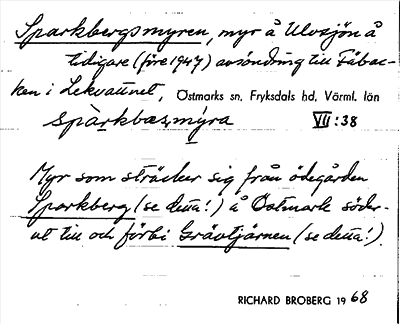 Sparkbergsmyren, myr å Ulvsjön å
tidigare (före 1947) avsöndring till Fäbac-
ken i Lekvattnet, Östmarks sn, Fryksdals hd, Värml. län
spàrkbæsmýra VII:38
Myr som sträcker sig från ödegården
Sparkberg (se detta!) å Östmark söder-
ut till och förbi Grävtjärnen (se detta!)
RICHARD BROBERG 1968